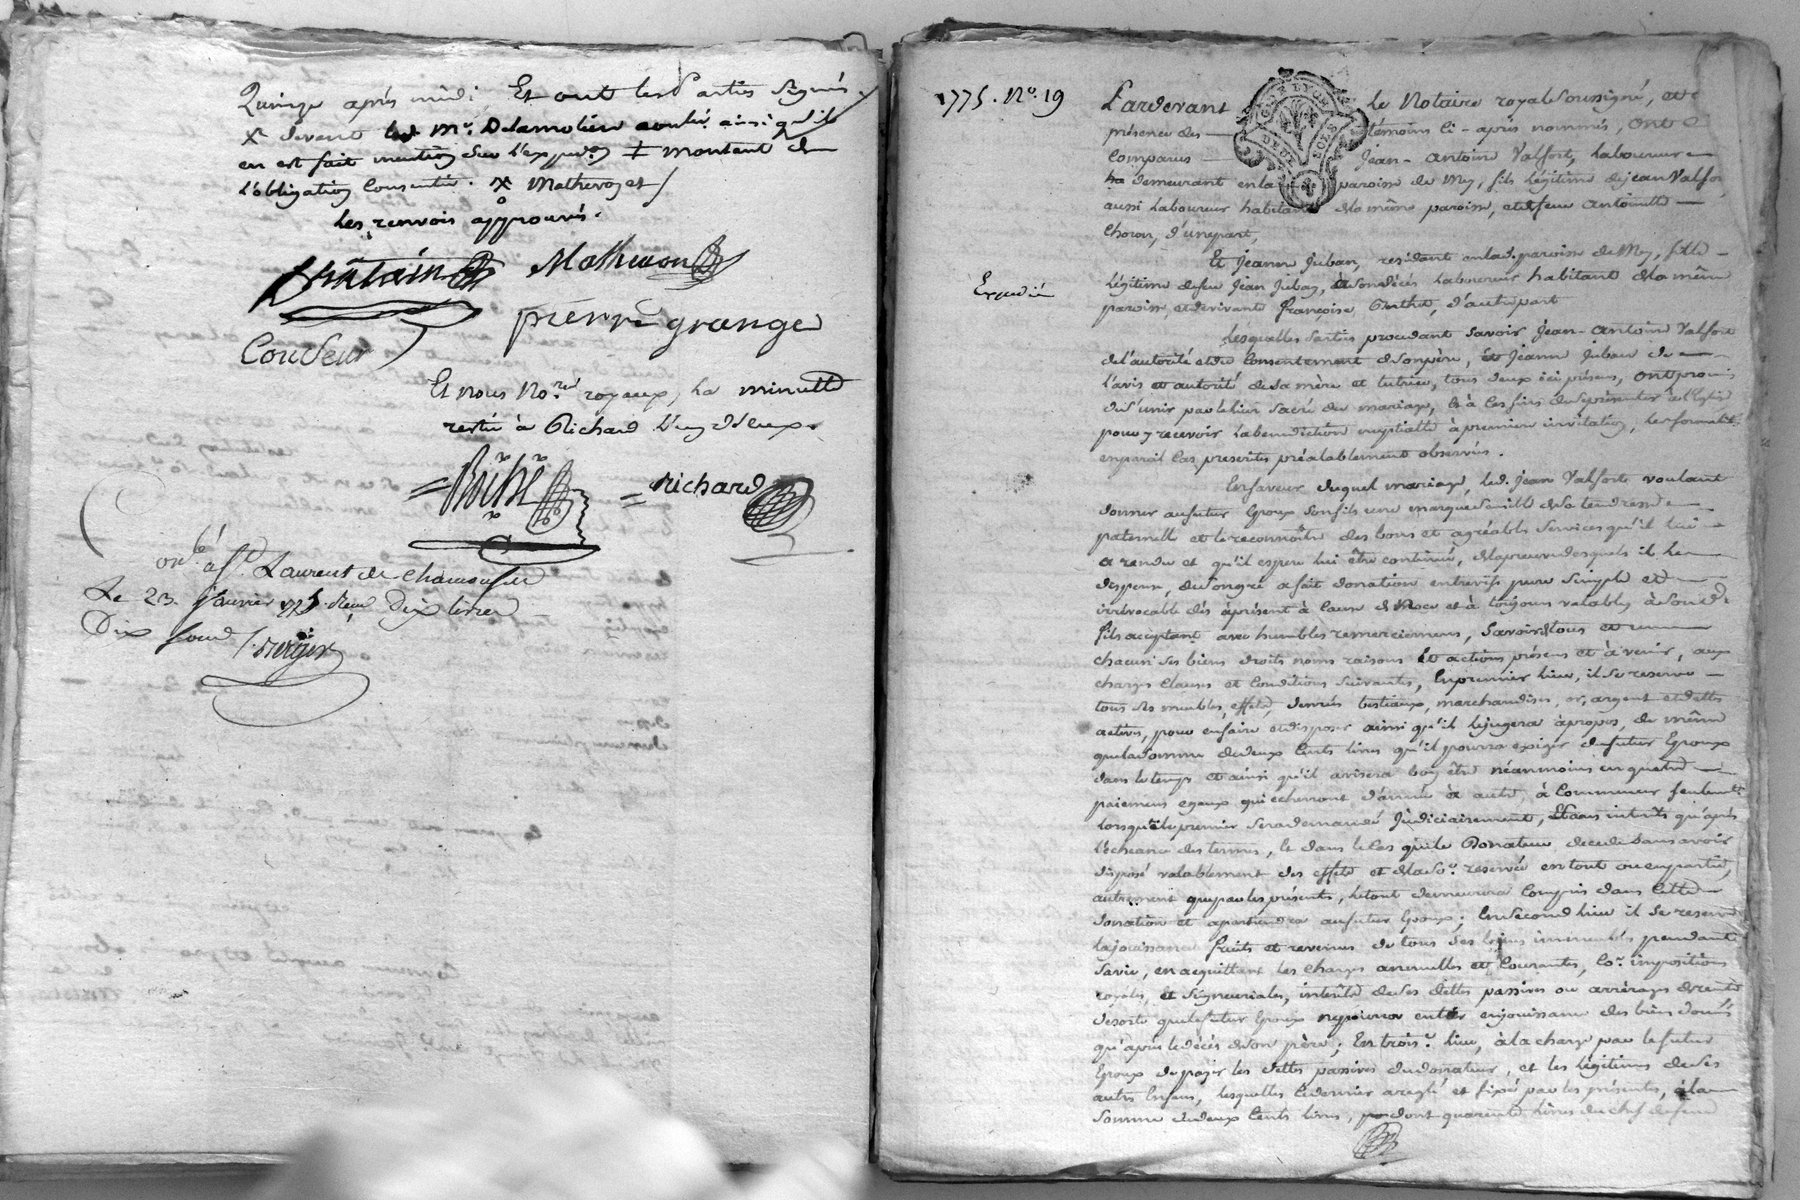 Quinze après midi, Et ont les Parties Signés.
X devant led. Mr. Delamoliere ainsi qu'il
en est fait mention sur l'expon. ‡ montant de
l'obligation Consentie. X Mathevon et /
Les renvois approuvés.
Mathevon
pierre grange
Couseur
Et nous Nores. royaux, La minutte
restée à Richard L'un d'Eux.
Richard
onlé. à St. Laurent de Chamousset
Le 23. janvier 1775. Reçu Dix Livres
Dix sous
1775. No. 19
Expedié
GNE. LYON
DEUX SOLS
Pardevant le Notaire royal Soussigné, et en
présence des témoins ci-après nommés, ont
Comparus Jean-Antoine Valfort, laboureur
demeurant en la paroisse de Mey, fils légitime de jean Valfort
aussi Laboureur habitant de la même paroisse, et de feue Antoinette
Choron, d'une part,
Et Jeanne Juban, residant en lad. paroisse de Mey, fille
légitime de feu Jean Juban, à son décès laboureur habitant de la même
paroisse, et de vivante françoise Onthe, d'autre part
Lesquelles parties procedant Savoir Jean-Antoine Valfort
de l'autorité et du Consentement de son père, et Jeanne Juban de
l'avis et autorité de sa mère et tutrice, tous deux ici présens, ont promis
de s'unir par le lien Sacré du mariage, et à ces fins de se présenter à l'Eglise
pour y recevoir la benediction nuptialle à premiere invitation, les formalités
en pareil Cas prescrites préalablement observées.
En faveur duquel mariage, led. Jean Valfort voulant
donner au futur Epoux son fils une marque Sensible de sa tendresse
paternelle et le reconnoître des bons et agréables Services qu'il lui
a rendu et qu'il espere lui être continués, de la preuve desquels il le
dispense, de son gré a fait donation entrevifs pure Simple et
irrévocable dès àprésent à Cause de Noce et à toujours valable, à Sond.
fils acceptant avec humbles remerciemens, Savoir de tous et un
chacun ses biens droits noms raisons Et actions présens et à venir, aux
charges Clauses et Conditions Suivantes, En premier lieu, il se reserve
tous ses meubles, effets, denrées bestiaux, marchandises, or, argent et dettes
actives, pour en faire et disposer ainsi qu'il le jugera à propos, de même
que la Somme de deux Cents livres qu'il pourra exiger du futur Epoux
dans le temps et ainsi qu'il avisera bon être néanmoins en quatre
paiemens egaux qui echerront d'année à autre, à Commencer Seulemt.
lorsque le premier Sera demandé Judiciairement, Et Sans intérêts qu'après
l'echeance des termes, Et dans le Cas que le Donateur decede Sans avoir
disposé valablement des effets et de la Se. reservée en tout ou en partie,
autrement que par les présentes, le tout demeurera Compris dans Cette
donation et apartiendra au futur Epoux; En Second lieu il Se reserve
la jouissance fruits et revenus de tous Ses biens immeubles pendant
Sa vie, en acquittant les charges annuelles et Courantes, Co.e impositions
royales, et Seigneuriales, intérêts de Ses dettes passives ou arrérages de rente
de sorte que le futur Epoux ne pourra entrer en jouissance des biens donnés
qu'après le décès de son père; En trois.e lieu, à la charge par le futur
Epoux de payer les dettes passives du donateur, et les légitimes de ses
autres Enfans, lesquelles Ce dernier a reglé et fixé par les présentes, à la
Somme de deux Cents livres, dont quarante livres du Chef de feue